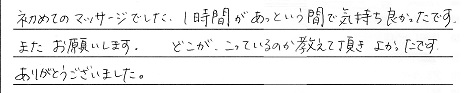 初めてのマッサージでした。1時間があっという間で気持ち良かったです。
また お願いします。 どこが、こっているのか教えて頂き よかったです
ありがとうございました。